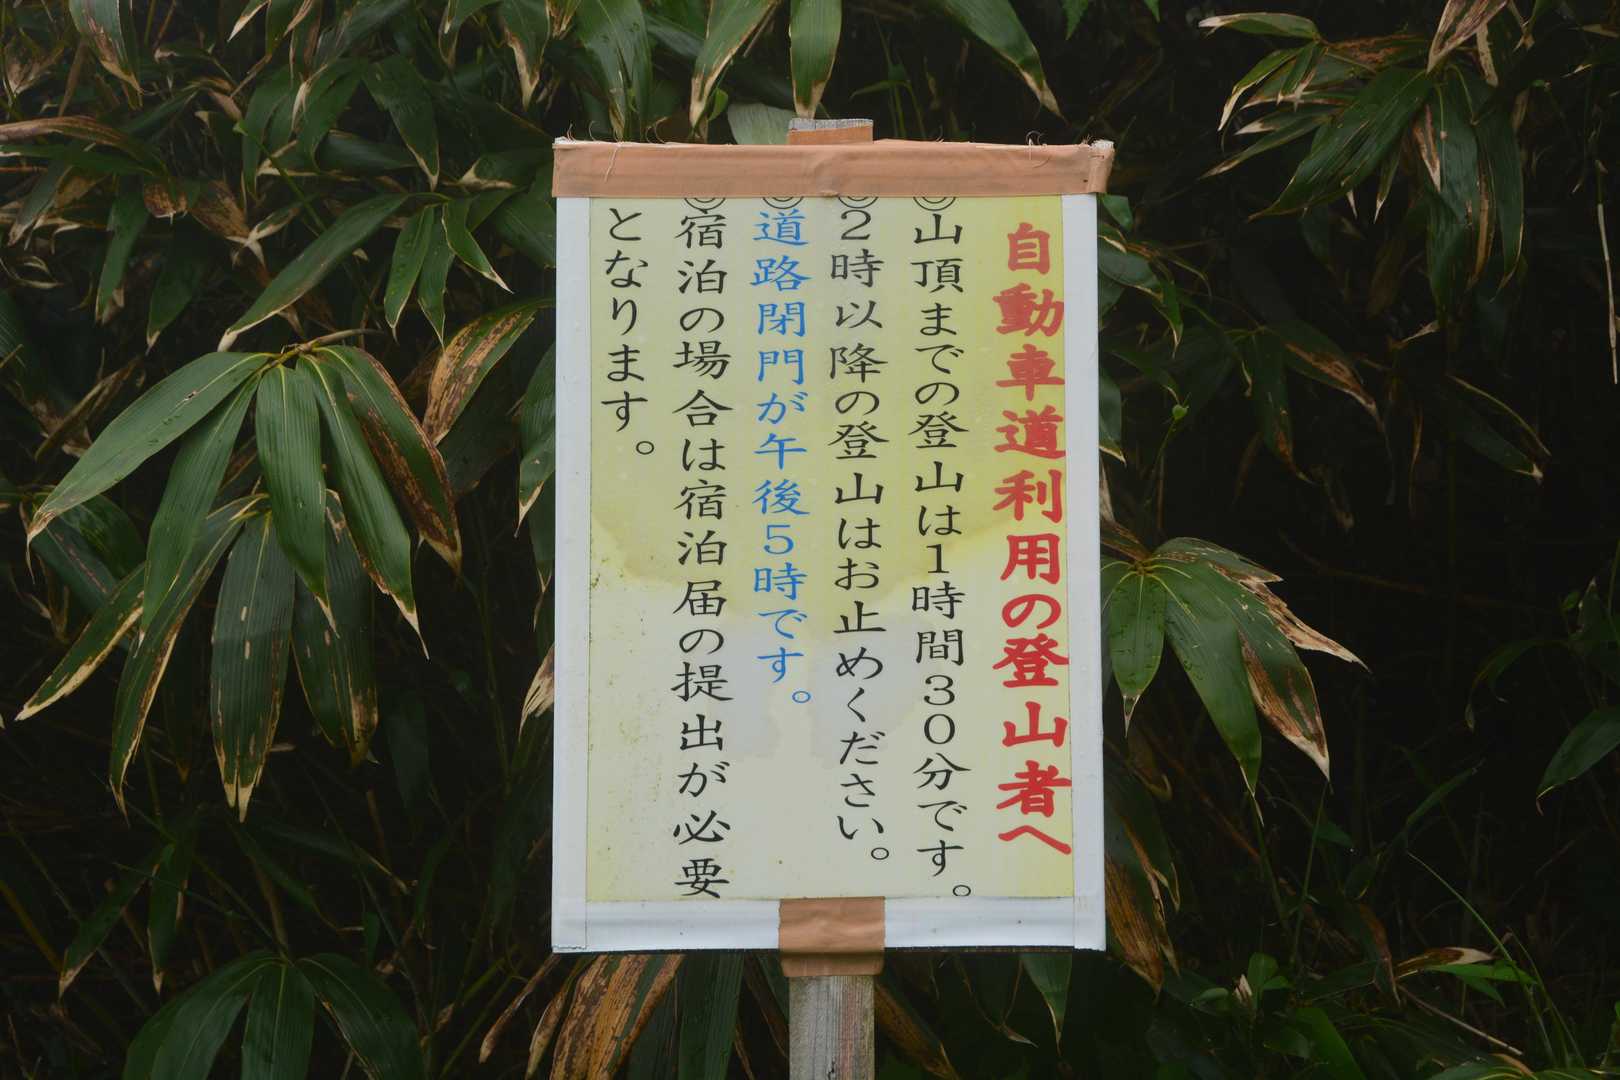 自動車道利用の登山者へ
◎山頂までの登山は1時間30分です。
◎2時以降の登山はお止めください。
◎道路閉門が午後5時です。
◎宿泊の場合は宿泊届の提出が必要
となります。